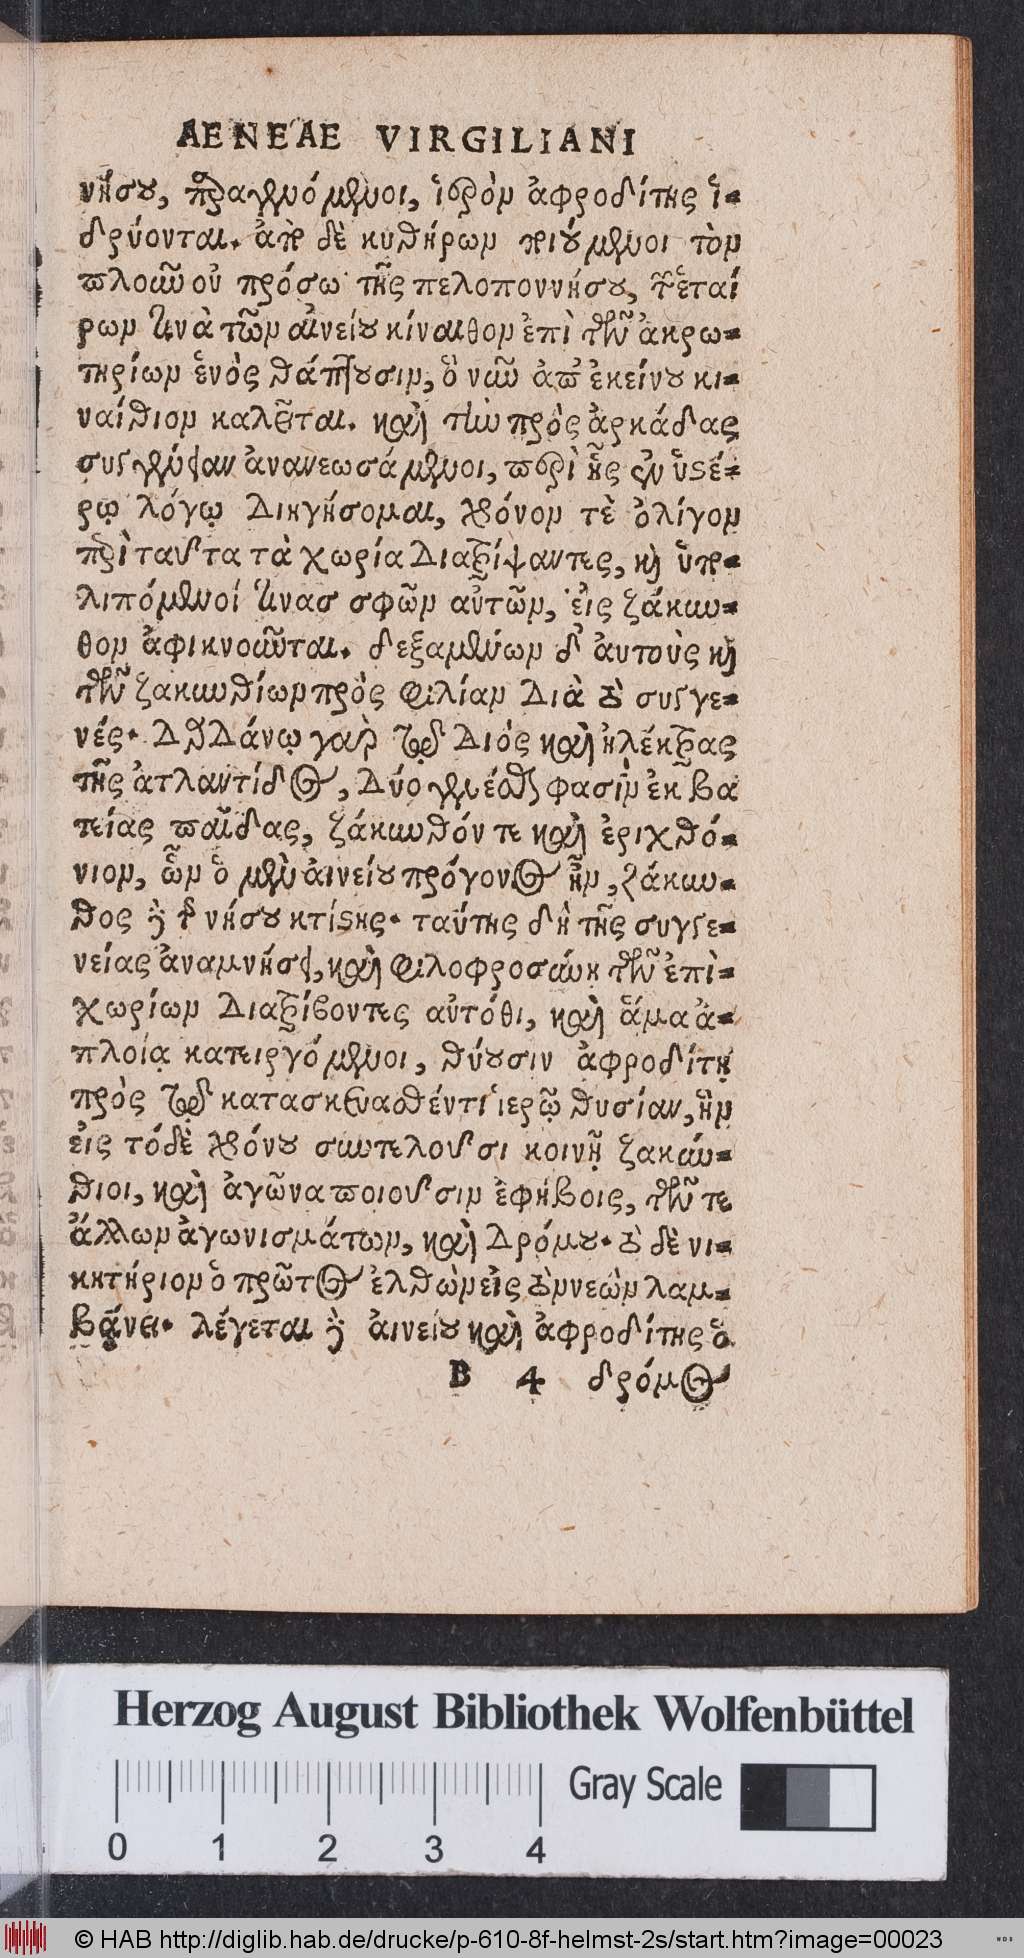 AENEAE VIRGILIANI
νήσου, παραγενόμενοι, ἱερὸν ἀφροδίτης ἱ-
δρύονται. ἀπὸ δὲ κυθήρων ποιούμενοι τὸν
πλοῦν οὐ πρόσω τῆς πελοποννήσου, τῶν ἑταί
ρων τινὰ τῶν αἰνείου κίναιθον ἐπὶ τῶν ἀκρω-
τηρίων ἑνὸς θάπτουσιν, ὃ νῦν ἀπ' ἐκείνου κι-
ναίθιον καλεῖται. καὶ τὴν πρὸς ἀρκάδας
συγγένειαν ἀνανεωσάμενοι, περὶ ἧς ἐν ὑστέ-
ρῳ λόγῳ διηγήσομαι, χρόνον τὲ ὀλίγον
περὶ ταῦτα τὰ χωρία διατρίψαντες, καὶ ὑπο-
λιπόμενοί τινας σφῶν αὐτῶν, εἰς ζάκυν-
θον ἀφικνοῦνται. δεξαμένων δ' αὐτοὺς καὶ
τῶν ζακυνθίων πρὸς φιλίαν διὰ τὸ συγγε-
νές. δαρδάνῳ γαρ τῷ διός καὶ ἠλέκτρας
τῆς ἀτλαντίδος, δύο γενέσθαι φασὶν ἐκ βα
τείας παῖδας, ζάκυνθόν τε καὶ ἐριχθό-
νιον, ὧν ὁ μὲν αἰνείου πρόγονος ἦν, ζάκυν-
θος δὲ τῆς νήσου κτίστης. ταύτης δὴ τῆς συγγε-
νείας ἀναμνήσει, καὶ φιλοφροσύνη τῶν ἐπὶ-
χωρίων διατρίβοντες αὐτόθι, καὶ ἅμα ἀ-
πλοίᾳ κατειργόμενοι, θύουσιν ἀφροδίτῃ
πρὸς τῷ κατασκευασθέντι ἱερῷ θυσίαν, ἣν
εἰς τόδε χρόνου συντελοῦσι κοινῇ ζακύν-
θιοι, καὶ ἀγῶνα ποιοῦσιν ἐφήβοις, τῶν τε
ἄλλων ἀγωνισμάτων, καὶ δρόμου. τὸ δὲ νι-
κητήριον ὁ πρῶτος ἐλθὼν εἰς τὸν νεὼν λαμ-
βάνει. λέγεται δὲ αἰνείου καὶ ἀφροδίτης ὁ
B 4 δρόμος
Herzog August Bibliothek Wolfenbüttel
0 1 2 3 4 Gray Scale
© HAB http://diglib.hab.de/drucke/p-610-8f-helmst-2s/start.htm?image=00023